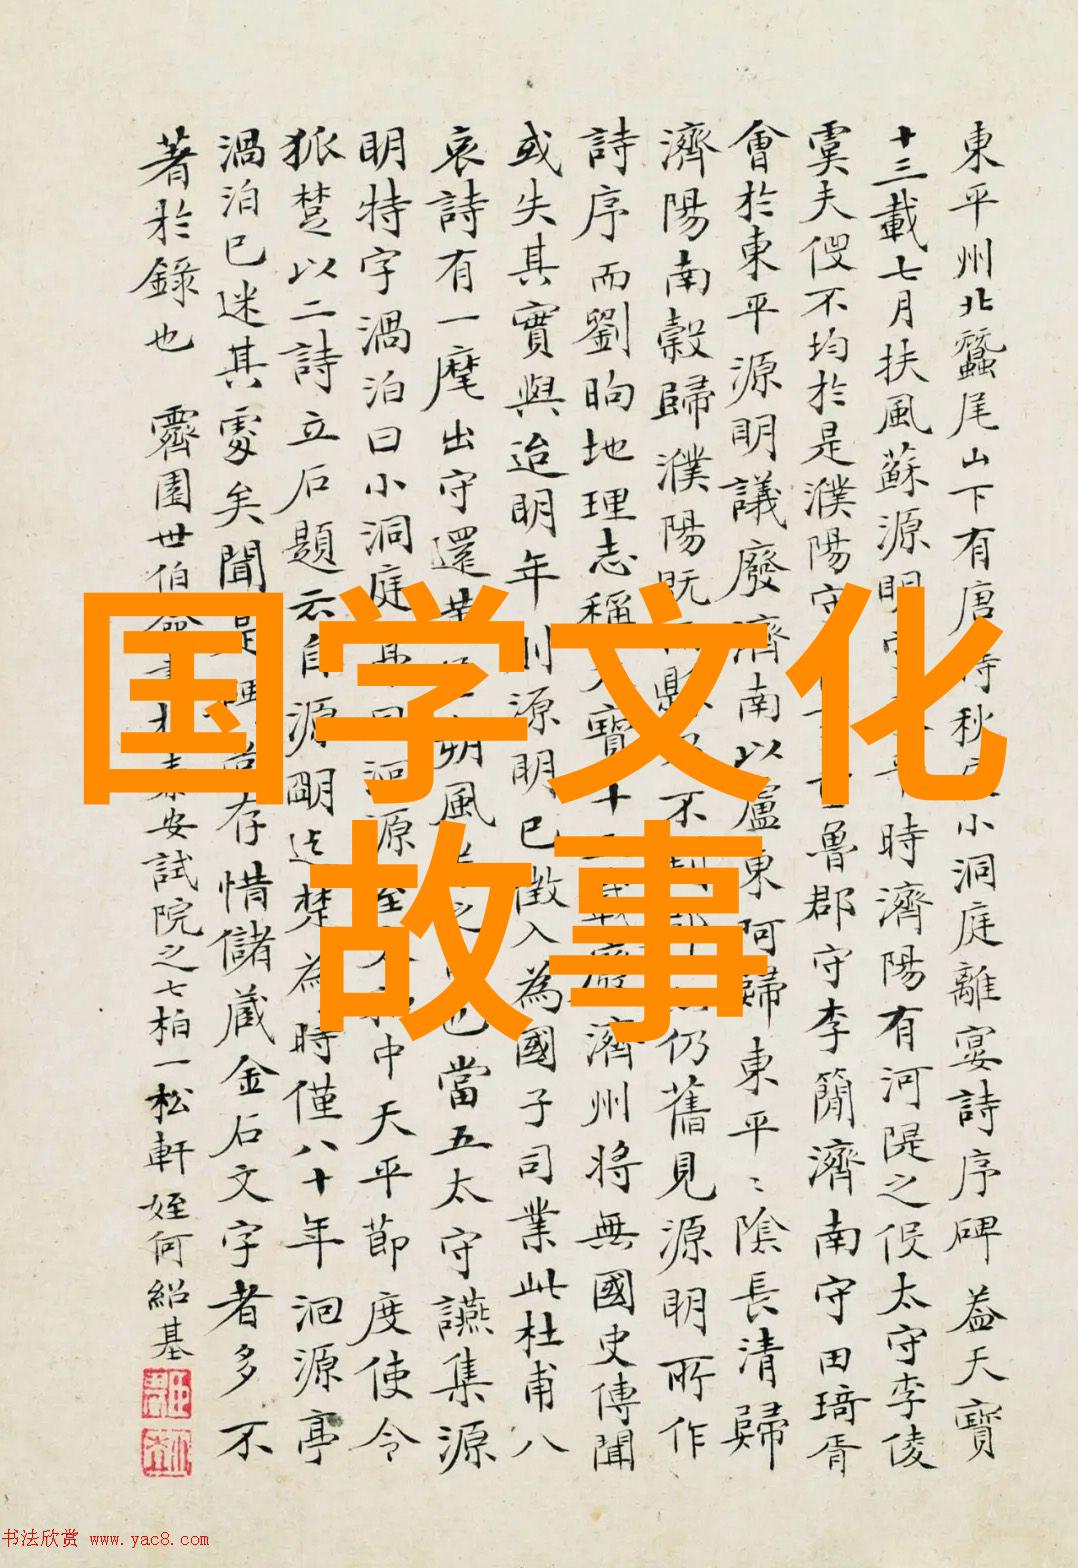 東平州北蠶尾山下有唐時秋 小洞庭離宴詩序碑蓋天寶
十三載七月扶風蘇源明 時濟陽有河隄之役太守李倰
虞夫役不均於是濮陽守 魯郡守李簡濟南守田琦胥
會於東平源明議廢濟南以盧東阿歸東平〻陰長清歸
濟陽南穀歸濮陽既 不 仍舊見源明所作
詩序而劉昫地理志稱天寶十 載廢濟州將無國史傳聞
或失其實與迨明年則源明已徵入為國子司業此杜甫八
哀詩有一麾出守還 朔風 之 也當五太守讌集源
明特字渦泊曰小洞庭 洄源 中天平節度使令
狐楚以二詩立石題云自源明迄楚為時僅八十年洄源亭
渦泊已迷其處矣聞是碑 存惜儲藏金石文字者多不
著於錄也 霽園世伯命書 泰安試院之七柏一松軒姪何紹基
国学文化
故事
书法欣赏 www.yac8.com